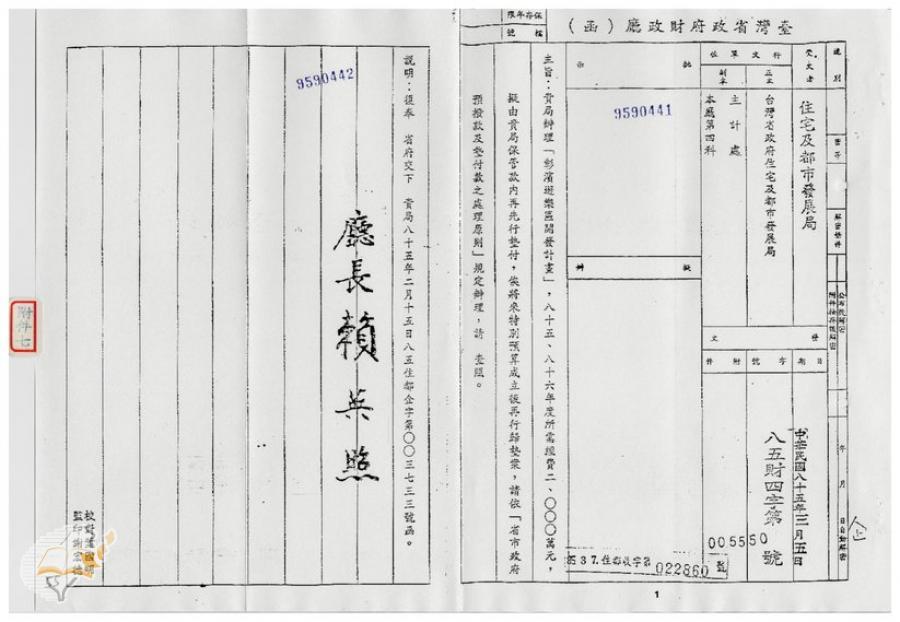 臺灣省政府財政廳（函）
保存年限
檔號
速別
密等
解密條件
公布後解密
附件抽存後解密
年 月 日自動解密
受文者
住宅及都市發展局
行文單位
正本
台灣省政府住宅及都市發展局
副本
主計處
本廳第四科
發文
日期
中華民國八十五年三月五日
字號
八五財四字第005550號
附件
批
9590441
擬辦
85 3 7.住都收字第022860號
主旨：貴局辦理「彰濱遊樂區開發計畫」，八十五、八十六年度所需經費二、○○○萬元，
擬由貴局保管款內再先行墊付，俟將來特別預算成立後再行歸墊案，請依「省市政府
預撥款及墊付款之處理原則」規定辦理，請 查照。
說明：復奉 省府交下 貴局八十五年二月十五日八五住都企字第○○三七三三號函。
9590442
廳長賴英照
校對
監印
附件七
1